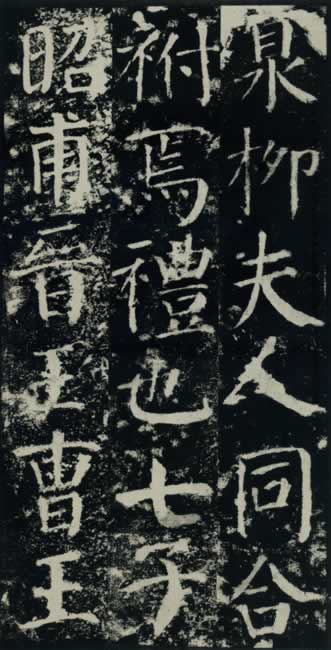 臮柳夫人同合
祔焉禮也七子
昭甫晉王曹王